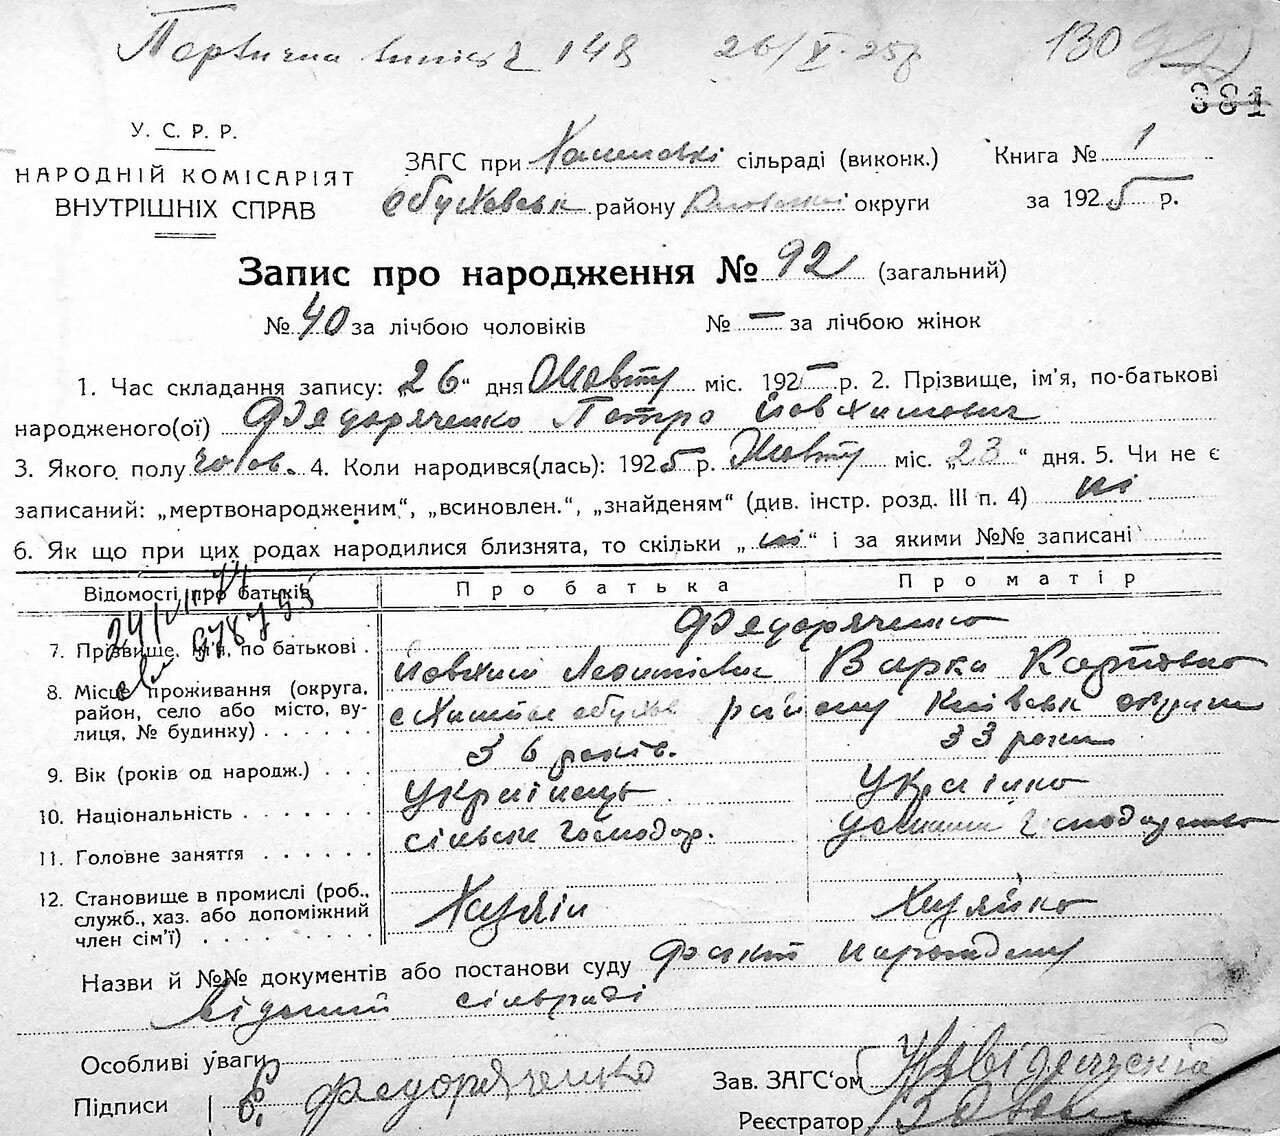 148 26/X-25р 130
381
У. С. Р. Р.
НАРОДНІЙ КОМІСАРІЯТ
ВНУТРІШНІХ СПРАВ
ЗАГС при сільраді (виконк.)
Обухівськ району округи
Книга № 1
за 1925 р.
Запис про народження № 92 (загальний)
№ 40 за лічбою чоловіків № — за лічбою жінок
1. Час складання запису: „26“ дня Жовтн міс. 1925 р. 2. Прізвище, ім'я, по-батькові
народженого(ої) Федоряченко Петро Йовхимович
3. Якого полу чолов. 4. Коли народився(лась): 1925 р. Жовтн міс. „23“ дня. 5. Чи не є
записаний: „мертвонародженим“, „всиновлен.“, „знайденям“ (див. інстр. розд. III п. 4) ні
6. Як що при цих родах народилися близнята, то скільки „ні“ і за якими №№ записані
Відомості про батьків Про батька Про матір
Федоряченко
7. Прізвище, ім'я, по батькові . Йовхим Леонтієвич Варка Карповна
8. Місце проживання (округа,
район, село або місто, ву-
лиця, № будинку) . . . . . району Київськ округи
9. Вік (років од народж.) . . . 36 років. 33 роки
10. Національність . . . . . . . Українець Українка
11. Головне заняття . . . . . . сільськ господар. домашн господарство
12. Становище в промислі (роб.,
служб., хаз. або допоміжний
член сім'ї) . . . . . . . . . Хазяін Хазяйка
Назви й №№ документів або постанови суду Факт народжену
відомий сільраді
Особливі уваги
Підписи Федоряченко
Зав. ЗАГС'ом
Реєстратор